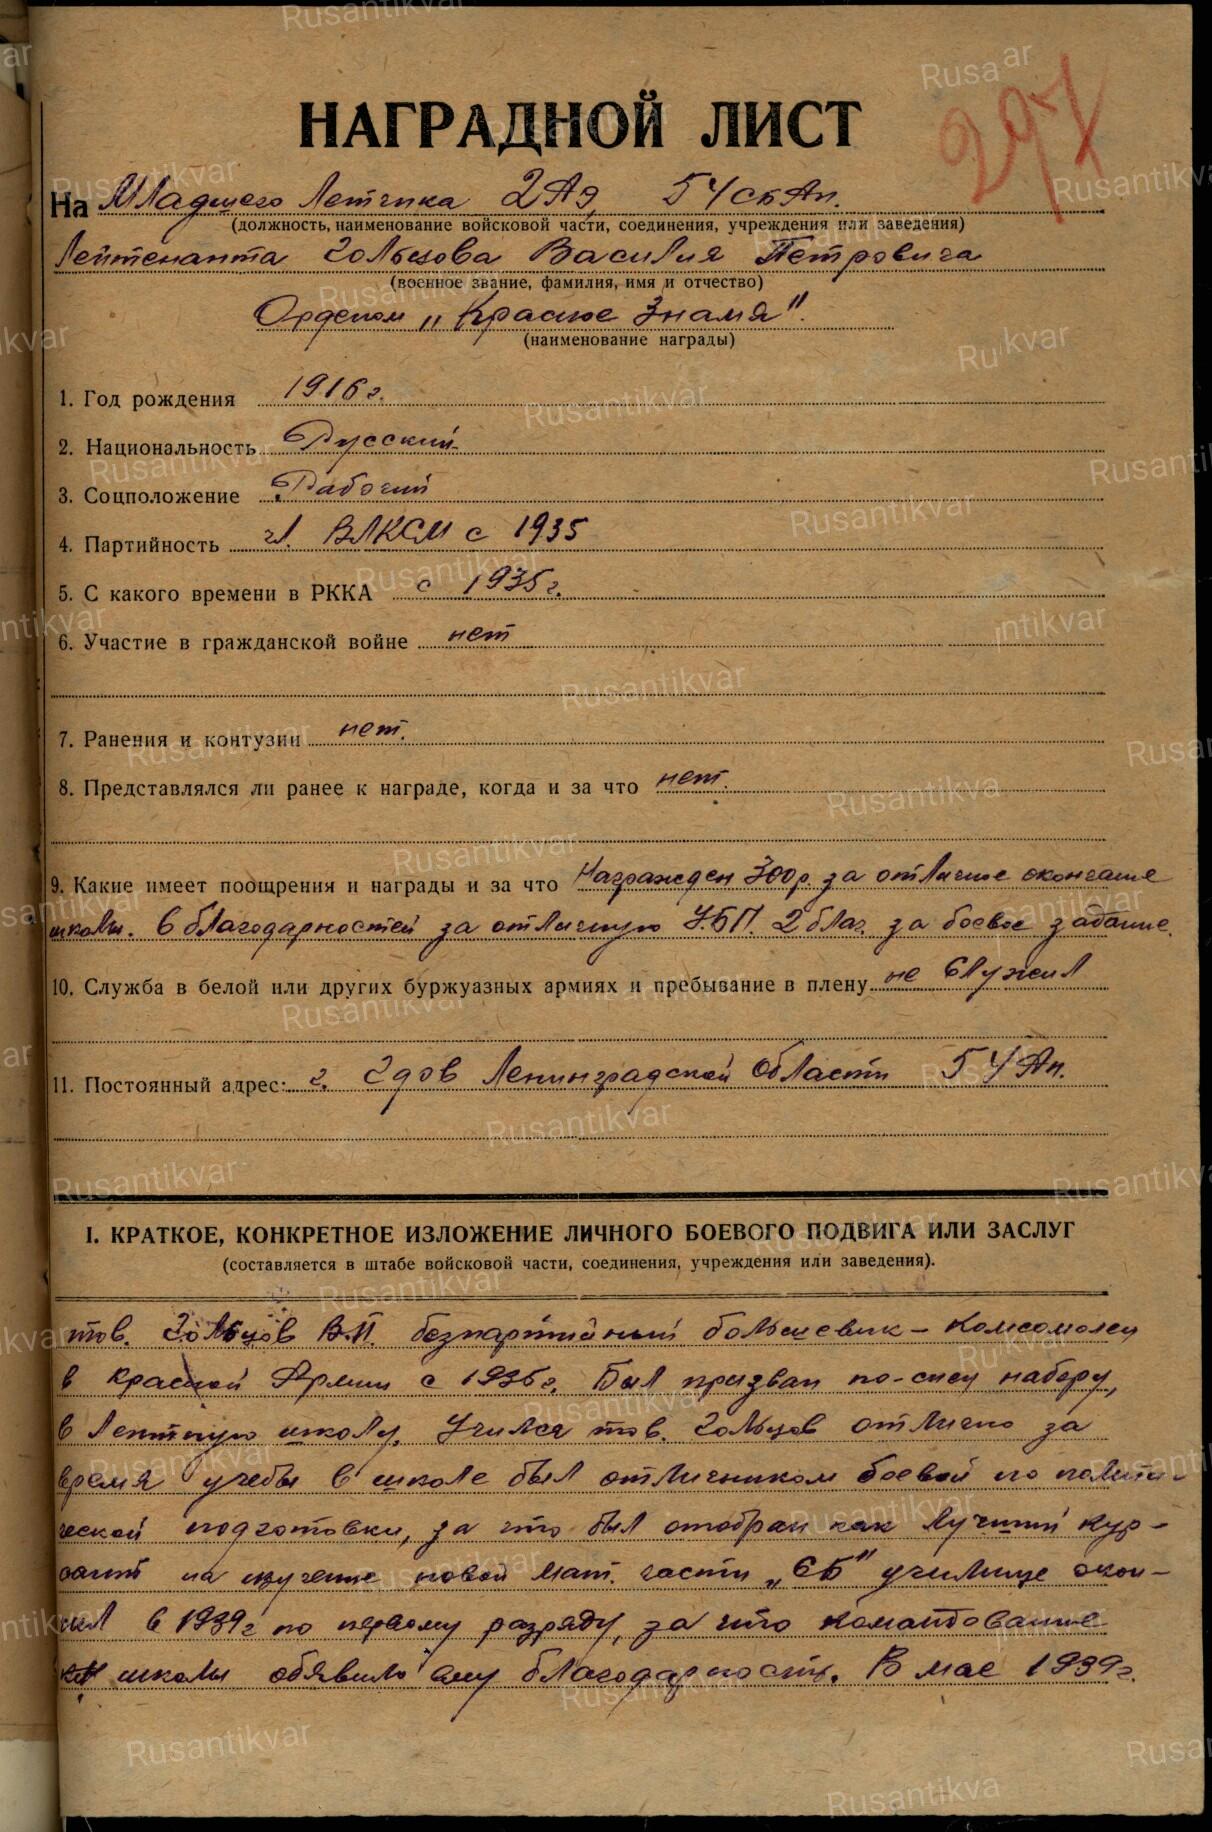 297
НАГРАДНОЙ ЛИСТ
На Младшего Летчика 2АЭ, 54 СбАп.
(должность, наименование войсковой части, соединения, учреждения или заведения)
Лейтенанта Гольцова Василия Петровича
(военное звание, фамилия, имя и отчество)
Орденом „Красное Знамя".
(наименование награды)
1. Год рождения 1916 г.
2. Национальность Русский
3. Соцположение Рабочий
4. Партийность чл. ВЛКСМ с 1935
5. С какого времени в РККА с 1935 г.
6. Участие в гражданской войне нет
7. Ранения и контузии нет.
8. Представлялся ли ранее к награде, когда и за что нет.
9. Какие имеет поощрения и награды и за что Награжден 300 р. за отличное окончание
школы. 6 благодарностей за отличную У.БП. 2 благ. за боевое задание.
10. Служба в белой или других буржуазных армиях и пребывание в плену не служил
11. Постоянный адрес: г. Гдов Ленинградской области 54 Ап.
I. КРАТКОЕ, КОНКРЕТНОЕ ИЗЛОЖЕНИЕ ЛИЧНОГО БОЕВОГО ПОДВИГА ИЛИ ЗАСЛУГ
(составляется в штабе войсковой части, соединения, учреждения или заведения).
тов. Гольцов В.П. безпартийный большевик – комсомолец
в Красной Армии с 1935 г. Был призван по-спец набору,
в Летную школу. Учился тов. Гольцов отлично за
время учебы в школе был отличником боевой и полити-
ческой подготовки, за что был отобран как лучший кур-
сант на изучение новой мат. части „СБ" училище окон-
чил в 1939 г по первому разряду, за что командование
школы обявило ему благодарность. В мае 1939 г.
Rusantikvar